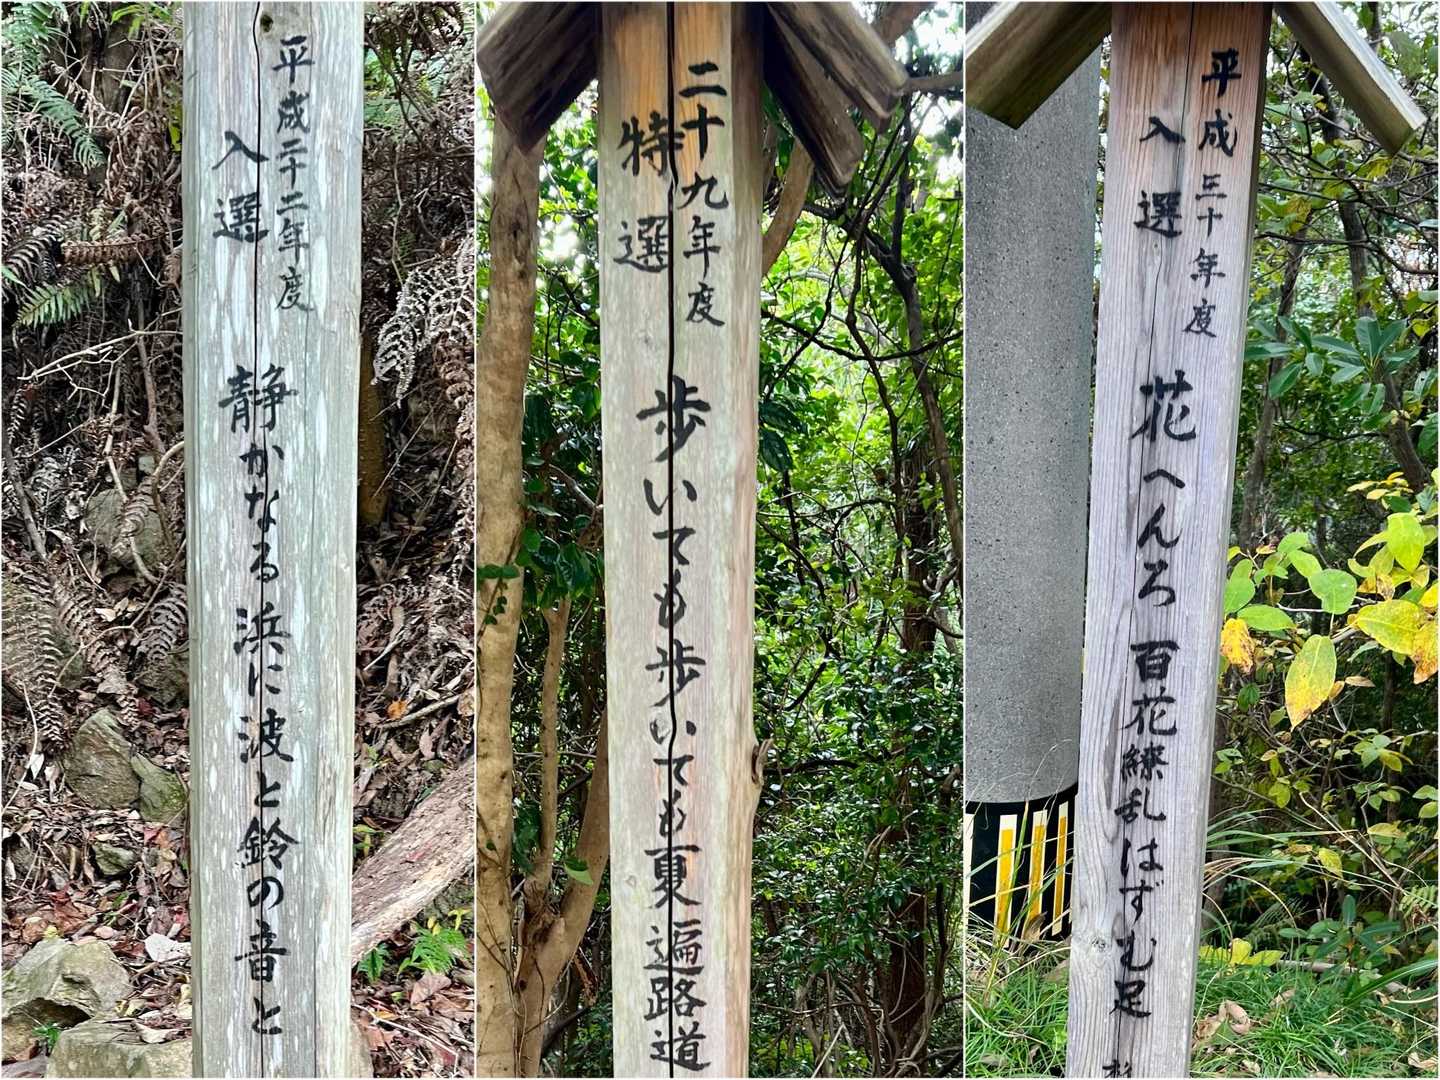 平成二十二年度
入選
静かなる浜に波と鈴の音と
二十九年度
特選
歩いても歩いても夏遍路道
平成三十年度
入選
花へんろ百花繚乱はずむ足